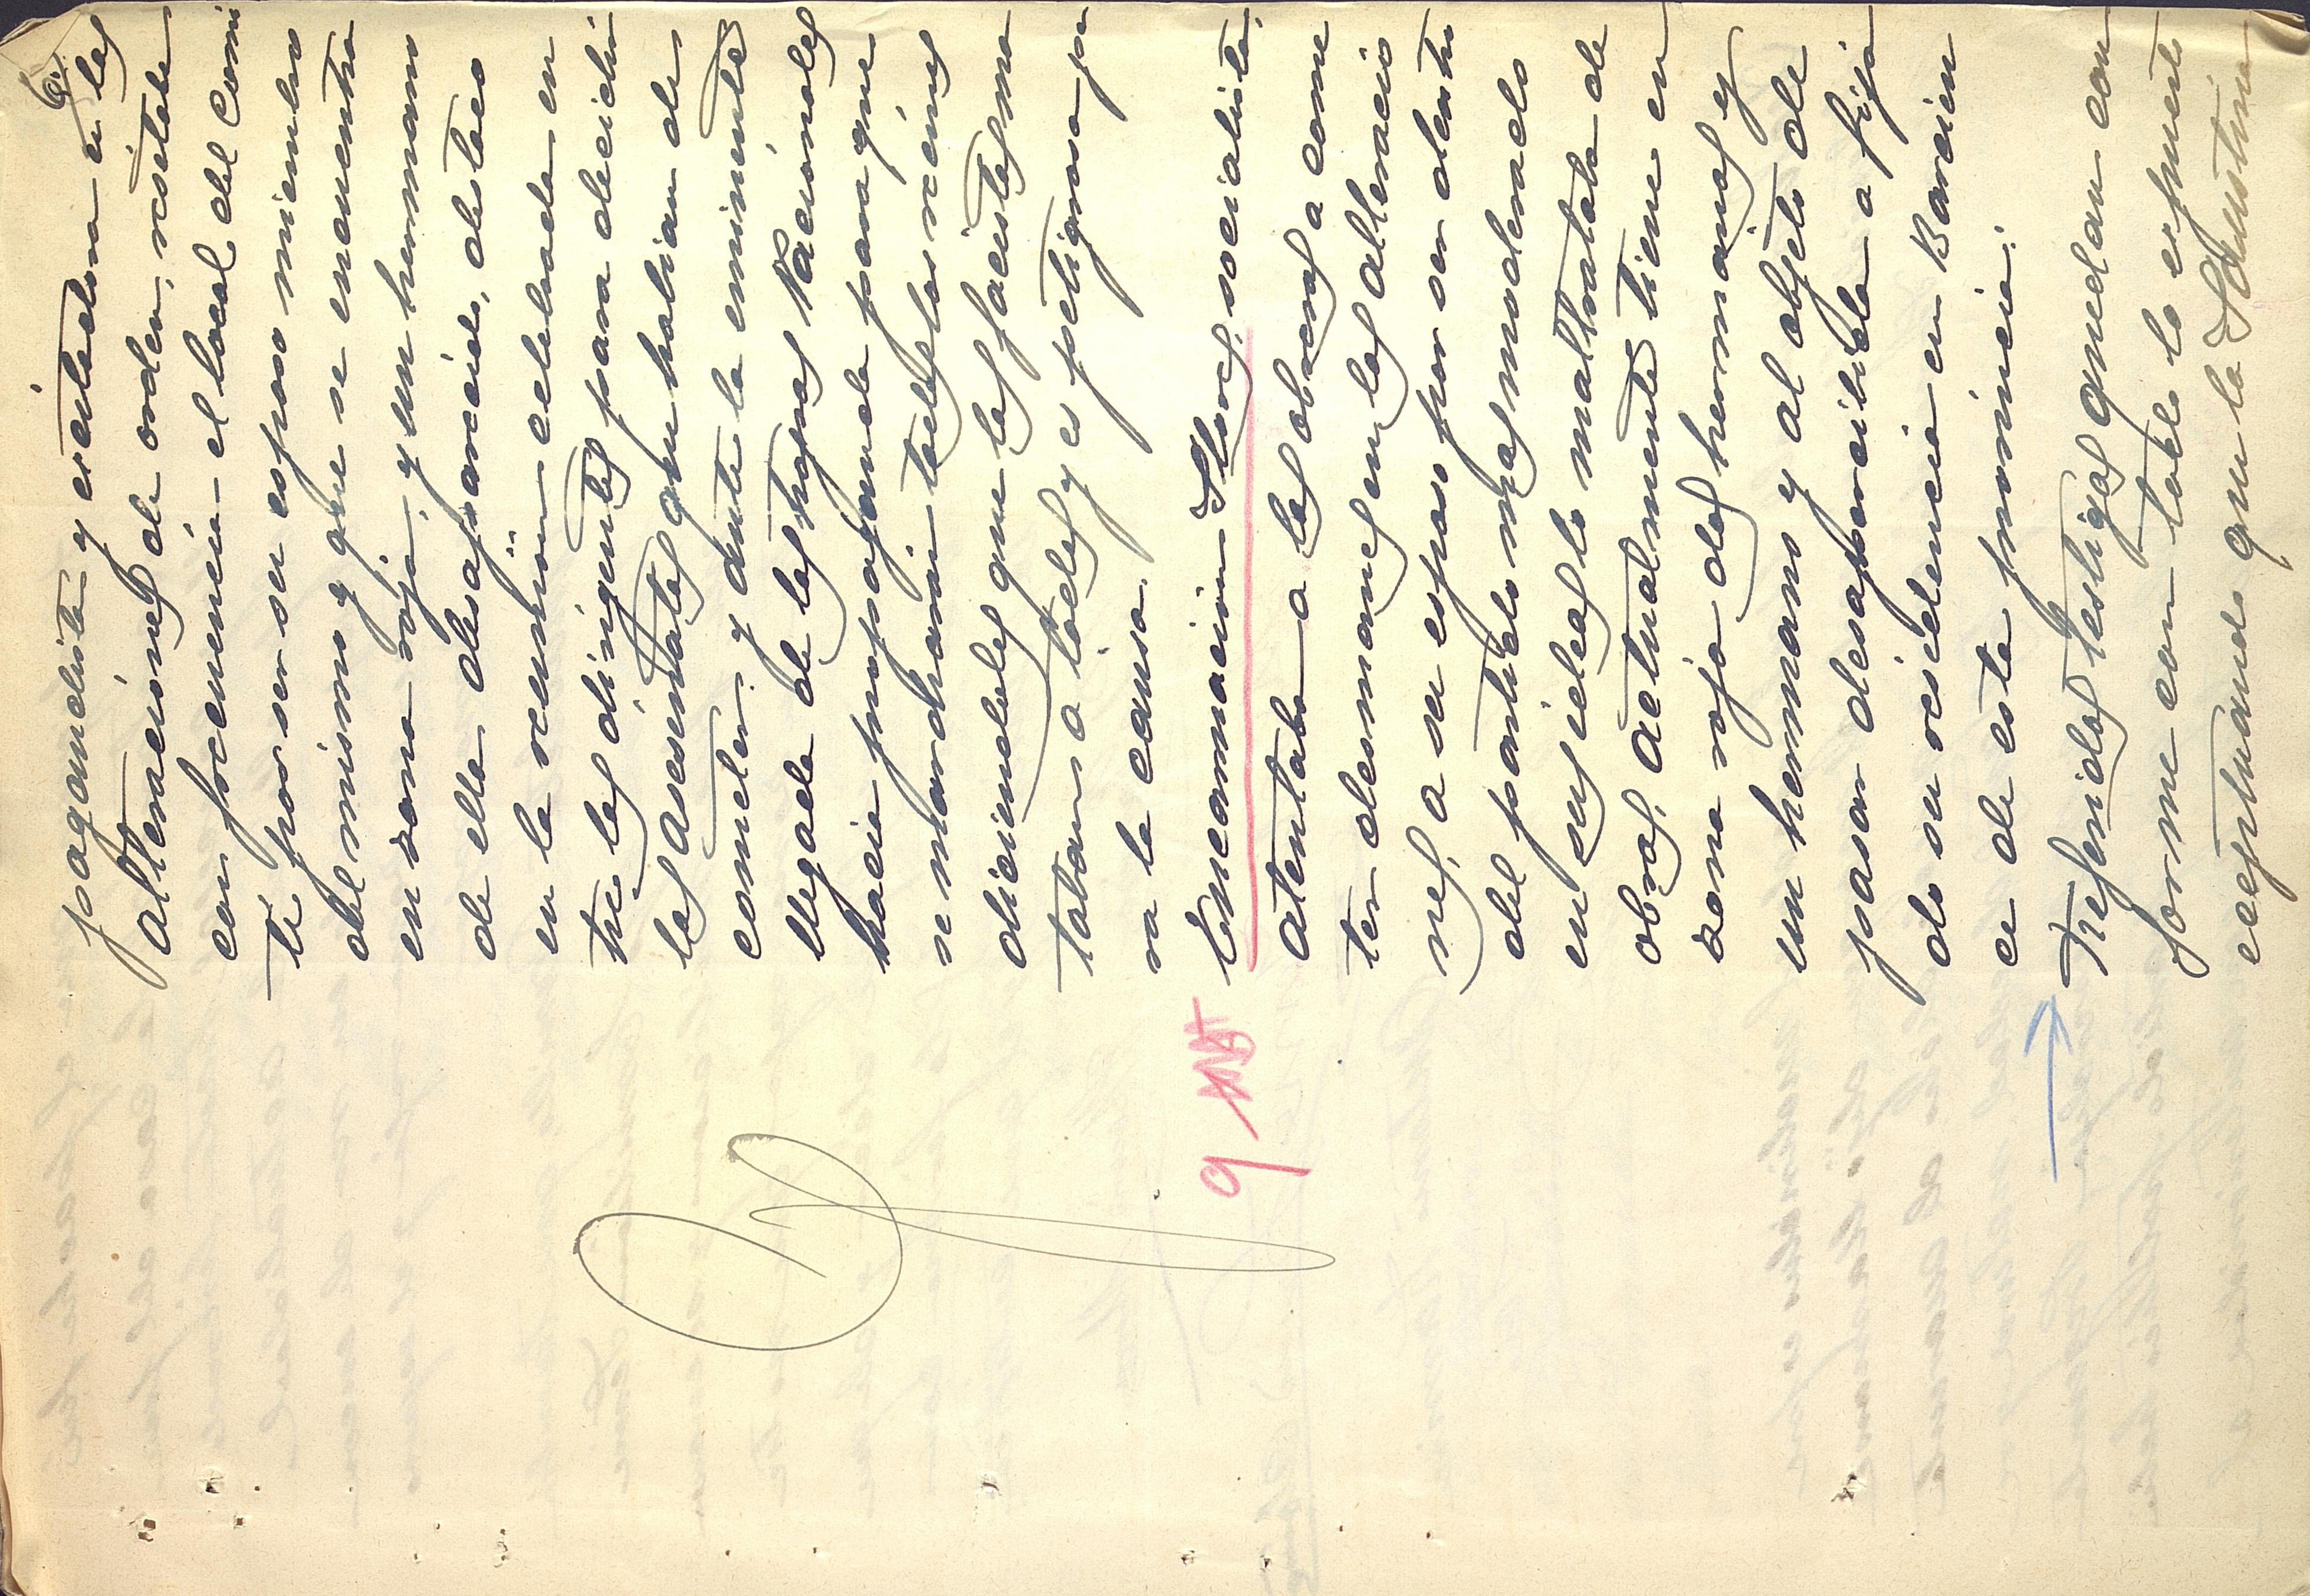 6
pagandista y exitadora a las
Alteraciones de orden, visitaba
con frecuencia el local del Comi
té por ser su esposo miembro
del mismo y que se encuentra
en zona roja, y un hermano
de ella desaparecido, destaco
en la reunión celebrada en
tre los dirigentes para decidir
los asesinatos que habian de
cometer, y ante la eminente
llegada de las tropas Nacionales
hacia propaganda para que
se marcharan todos los vecinos
diciendoles que los facistas ma
taban a todos y es peligrosa pa
ra la causa.
9
Encarnacion Flores, socialista,
Alentaba a los obreros a come
ter desmanes en las alteracio
nes, a su esposo por ser dentro
del partido mas moderado
en sus ideas lo maltrataba de
obras, Actualmente tiene en
zona roja dos hermanos y
un hermano y al objeto de
pasar desapercibida a fija
do su residencia en Barcien
ce de esta provincia.
Referidos testigos quedan con
forme con todo lo espuesto
eceptuando que la Faustina